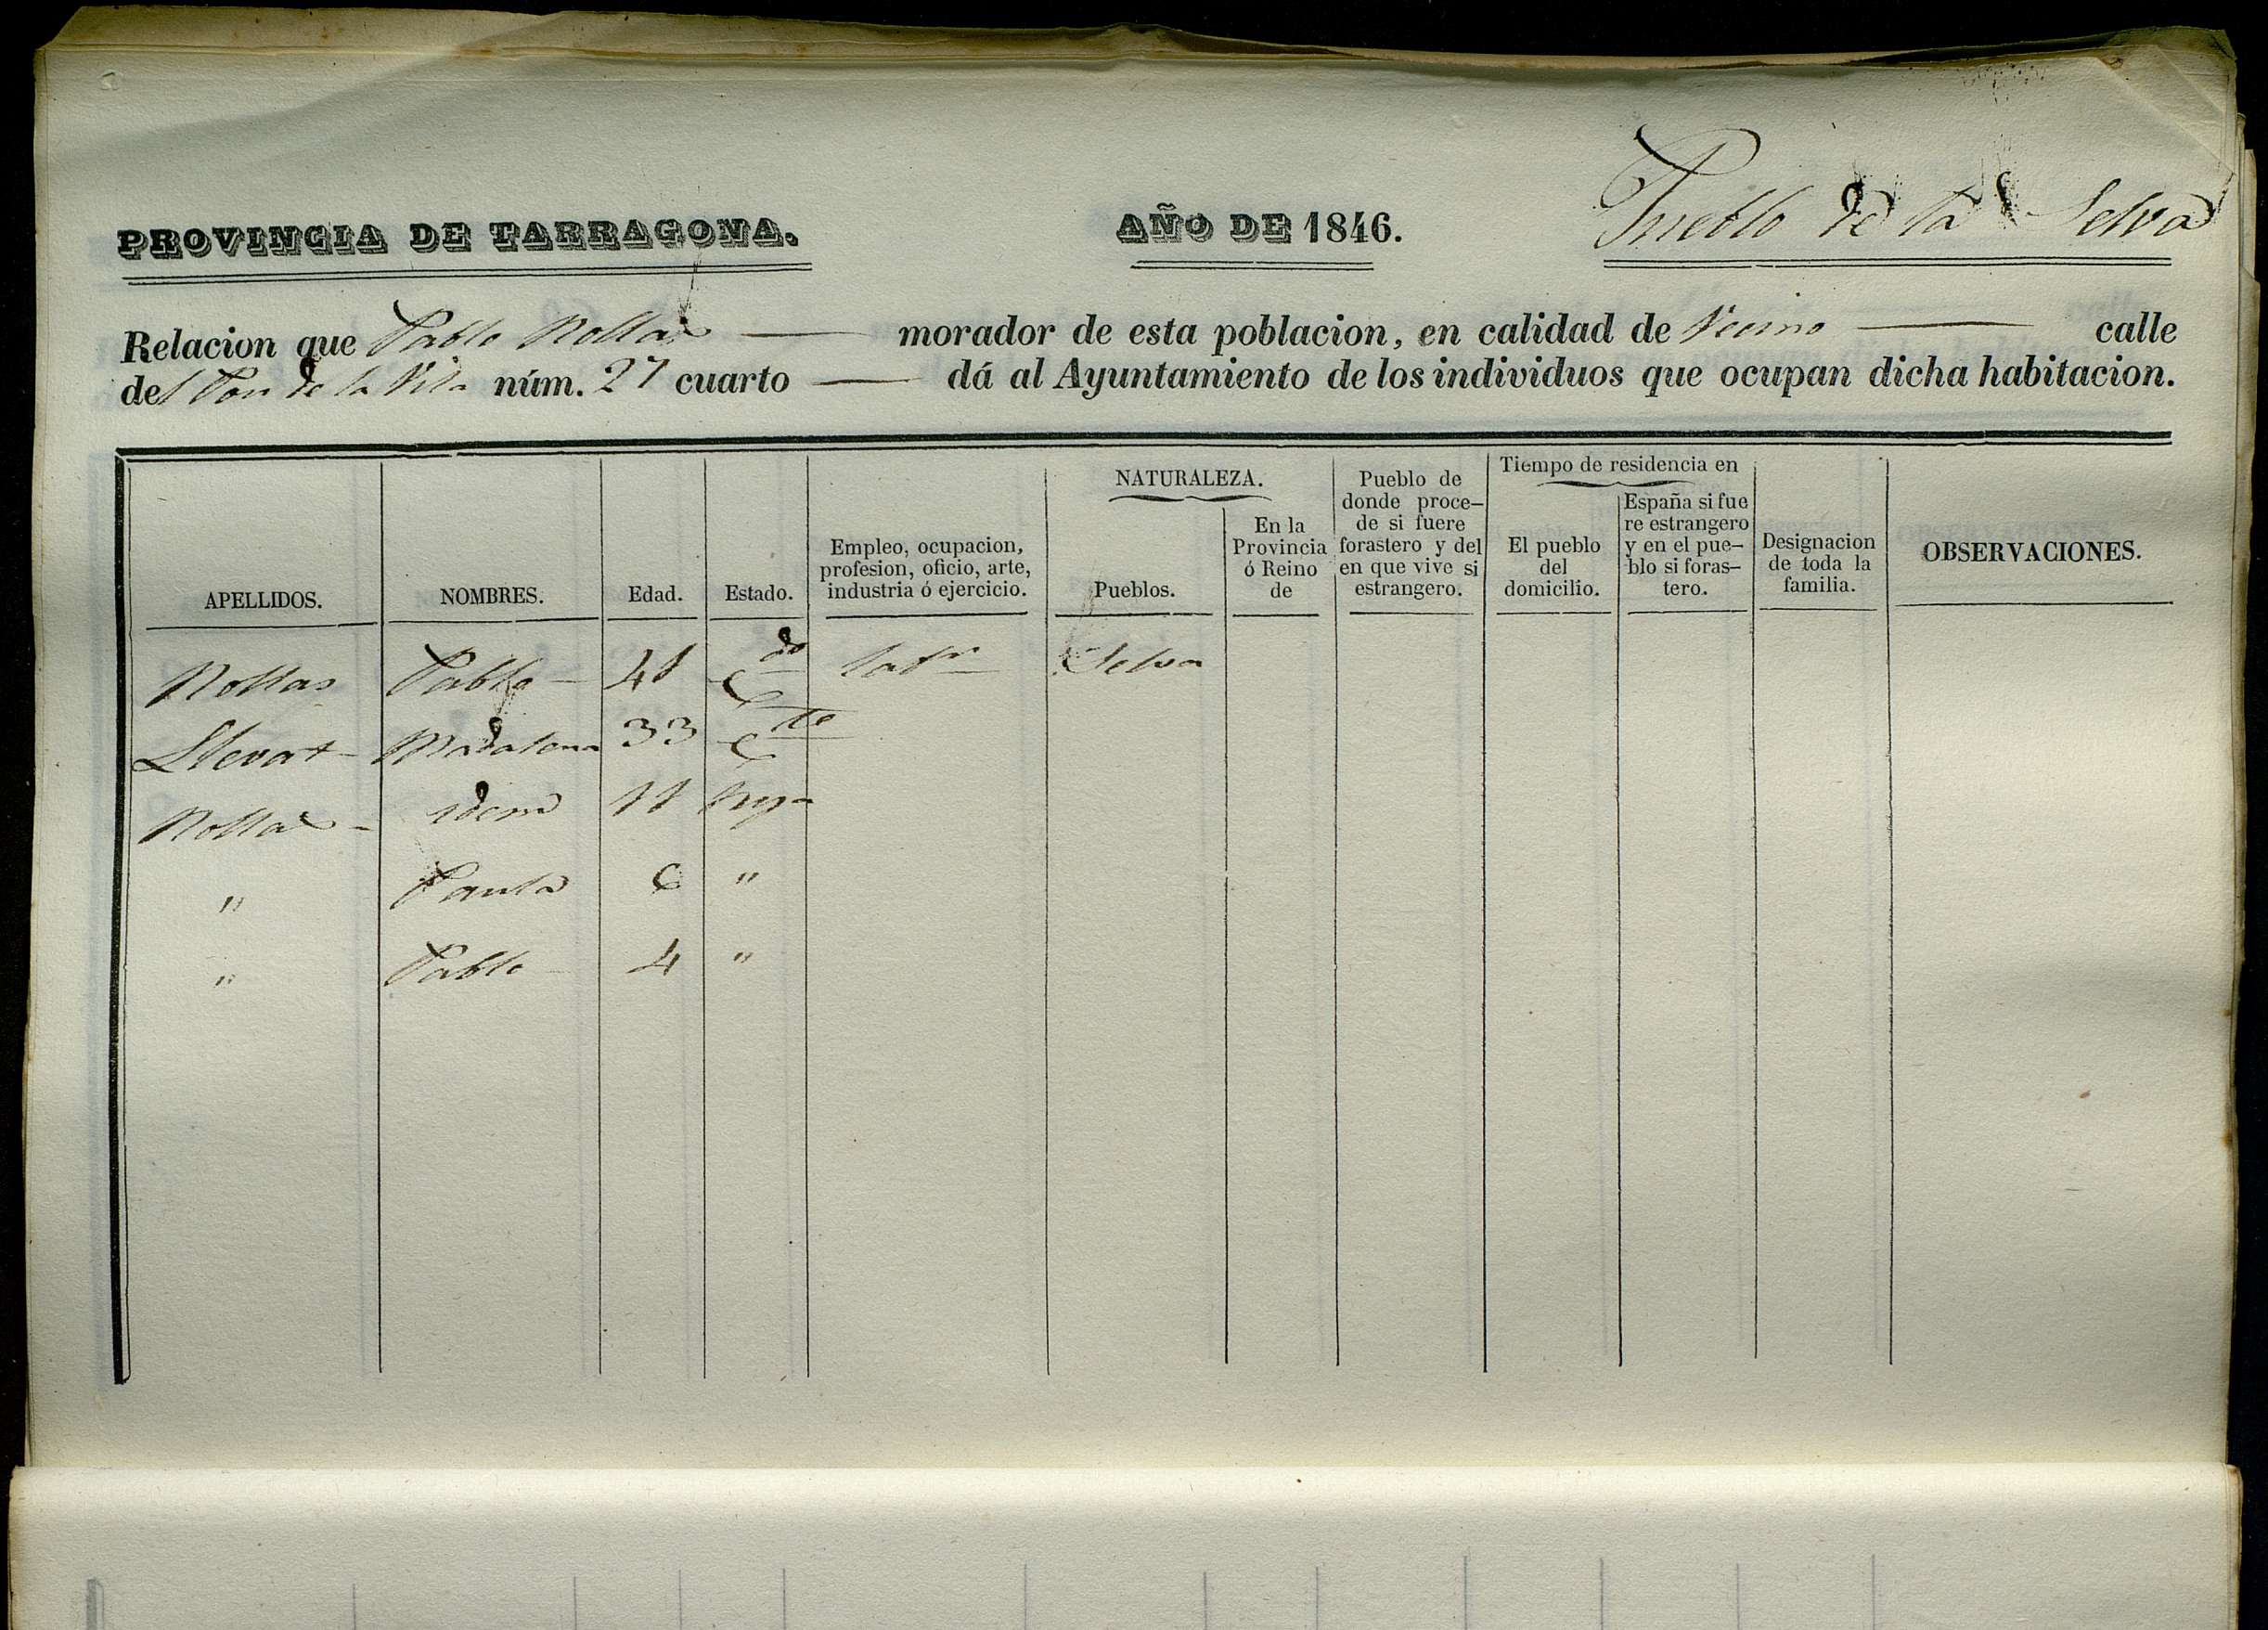 PROVINCIA DE TARRAGONA.
AÑO DE 1846.
Pueblo de la Selva
Relacion que Pablo morador de esta poblacion, en calidad de Vecino calle
del de la Vila núm. 27 cuarto dá al Ayuntamiento de los individuos que ocupan dicha habitacion.
APELLIDOS.
NOMBRES.
Edad.
Estado.
Empleo, ocupacion,
profesion, oficio, arte,
industria ó ejercicio.
NATURALEZA.
Pueblos.
En la
Provincia
ó Reino
de
Pueblo de
donde proce-
de si fuere
forastero y del
en que vive si
estrangero.
Tiempo de residencia en
El pueblo
del
domicilio.
España si fue
re estrangero
y en el pue-
blo si foras-
tero.
Designacion
de toda la
familia.
OBSERVACIONES.
Pablo 41 Cdo Selva
Llevat Madalena 33 Cte
idem 11
" Paula 6 "
" Pablo 4 "